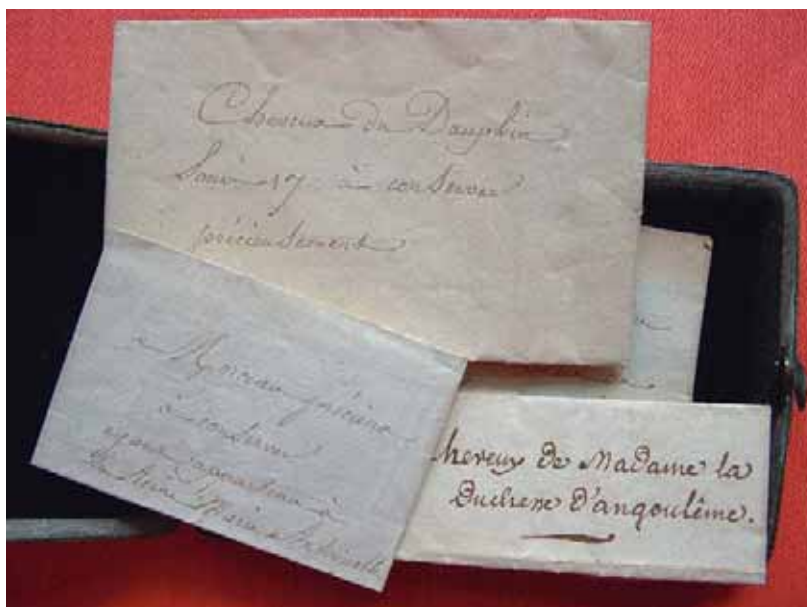 Cheveux du Dauphin
Louis 17 à conserver
précieusement
Morceau précieux
à conserver
ayant appartenu à
la Reine Marie Antoinette
heveux de Madame la
Duchesse D'angoulême.